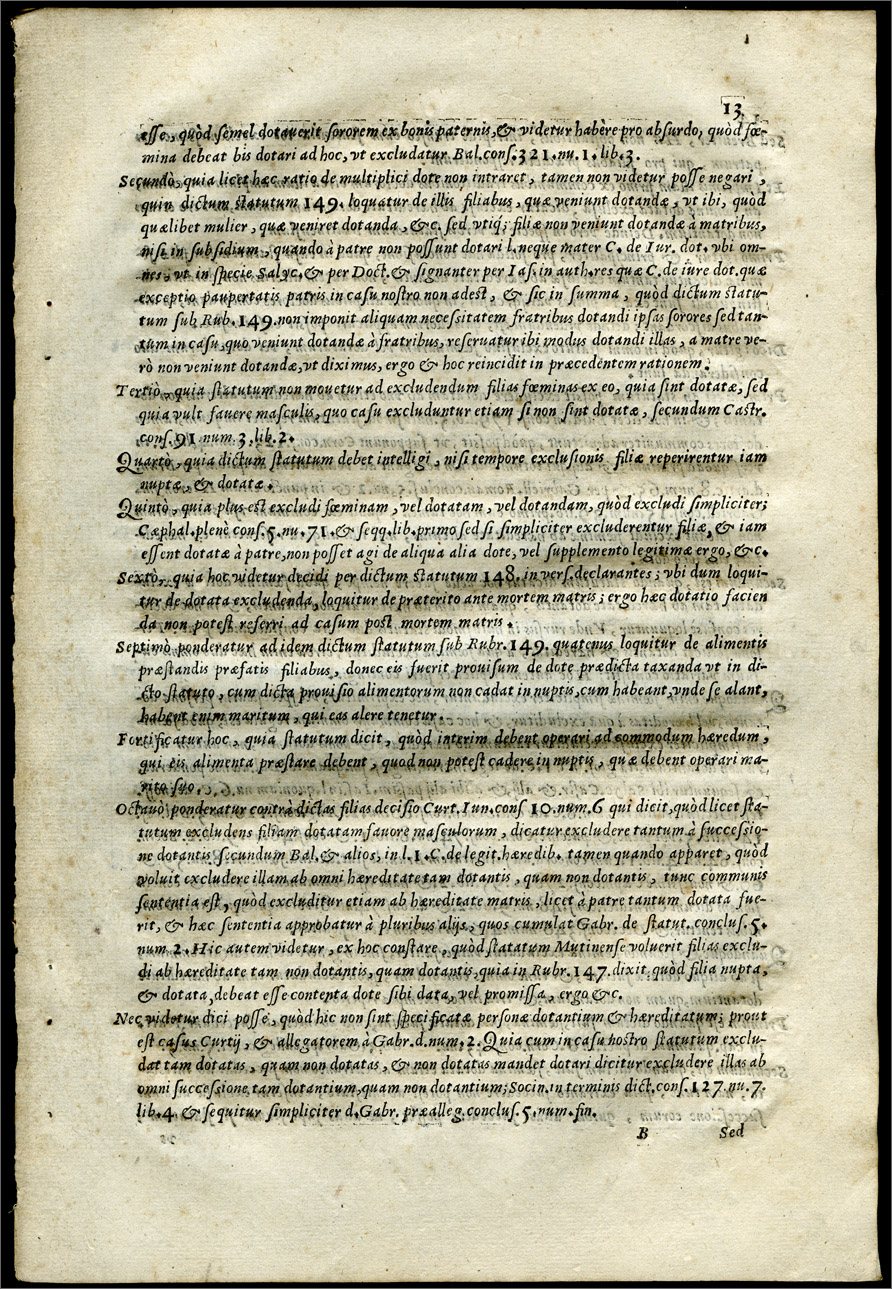 13
esse, quòd semel dotauerit sororem ex bonis paternis, & videtur habère pro absurdo, quòd fœ-
mina debeat bis dotari ad hoc, vt excludatur Bal. cons. 321. nu. 1. lib. 3.
Secundò, quia licet hæc ratio de multiplici dote non intraret, tamen non videtur posse negari,
quin dictum statutum 149. loquatur de illis filiabus, quæ veniunt dotandæ, vt ibi, quòd
quælibet mulier, quæ veniret dotanda, &c. sed vtiq; filiæ non veniunt dotandæ à matribus,
nisi in subsidium, quando à patre non possunt dotari l. neque mater C. de Iur. dot. vbi om-
nes, vt in specie Salyc. & per Doct. & signanter per Ias. in auth. res quæ C. de iure dot. quæ
exceptio paupertatis patris in casu nostro non adest, & sic in summa, quòd dictum statu-
tum sub Rub. 149. non imponit aliquam necessitatem fratribus dotandi ipsas sorores sed tan-
tum in casu, quo veniunt dotandæ à fratribus, reseruatur ibi modus dotandi illas, a matre ve-
rò non veniunt dotandæ, vt diximus, ergo & hoc reincidit in præcedentem rationem.
Tertiò, quia statutum non mouetur ad excludendum filias fœminas ex eo, quia sint dotatæ, sed
quia vult fauere masculis, quo casu excluduntur etiam si non sint dotatæ, secundum Castr.
cons. 91 num. 3. lib. 2.
Quarto, quia dictum statutum debet intelligi, nisi tempore exclusionis filiæ reperirentur iam
nuptæ, & dotatæ.
Quintò, quia plus est excludi fœminam, vel dotatam, vel dotandam, quòd excludi simpliciter;
Cæphal. plenè cons. 5. nu. 71. & seqq. lib. primo sed si simpliciter excluderentur filiæ, & iam
essent dotatæ à patre, non posset agi de aliqua alia dote, vel supplemento legitimæ ergo, &c.
Sextò, quia hoc videtur decidi per dictum statutum 148. in vers. declarantes; vbi dum loqui-
tur de dotata excludenda, loquitur de præterito ante mortem matris; ergo hæc dotatio facien
da non potest referri ad casum post mortem matris.
Septimò ponderatur ad idem dictum statutum sub Rubr. 149. quatenus loquitur de alimentis
præstandis præfatis filiabus, donec eis fuerit prouisum de dote prædicta taxanda vt in di-
cto statuto, cum dicta prouisio alimentorum non cadat in nuptis, cum habeant, vnde se alant,
habent enim maritum, qui eas alere tenetur.
Fortificatur hoc, quia statutum dicit, quòd interim debent operari ad commodum hæredum,
qui eis alimenta præstare debent, quod non potest cadere in nuptis, quæ debent operari ma-
rito suo.
Octauò ponderatur contrà dictas filias decisio Curt. Iun. cons 10. num. 6 qui dicit, quòd licet sta-
tutum excludens filiam dotatam fauore masculorum, dicatur excludere tantum à successio-
ne dotantis secundum Bal. & alios, in l. 1. C. de legit. hæredib. tamen quando apparet, quòd
voluit excludere illam ab omni hæreditate tam dotantis, quam non dotantis, tunc communis
sententia est, quòd excluditur etiam ab hæreditate matris, licet à patre tantum dotata fue-
rit, & hæc sententia approbatur à pluribus alijs, quos cumulat Gabr. de statut. conclus. 5.
num. 2. Hic autem videtur, ex hoc constare, quòd statatum Mutinense voluerit filias exclu-
di ab hæreditate tam non dotantis, quam dotantis, quia in Rubr. 147. dixit, quòd filia nupta,
& dotata, debeat esse contenta dote sibi data, vel promissa, ergo &c.
Nec videtur dici posse, quòd hic non sint specificatæ personæ dotantium & hæreditatum; prout
est casus Curtij, & allegatorem à Gabr. d. num. 2. Quia cum in casu nostro statutum exclu-
dat tam dotatas, quam non dotatas, & non dotatas mandet dotari dicitur excludere illas ab
omni successione tam dotantium, quam non dotantium; Socin. in terminis dict. cons. 127. nu. 7.
lib. 4. & sequitur simpliciter d. Gabr. præalleg. conclus. 5. num. fin.
B Sed